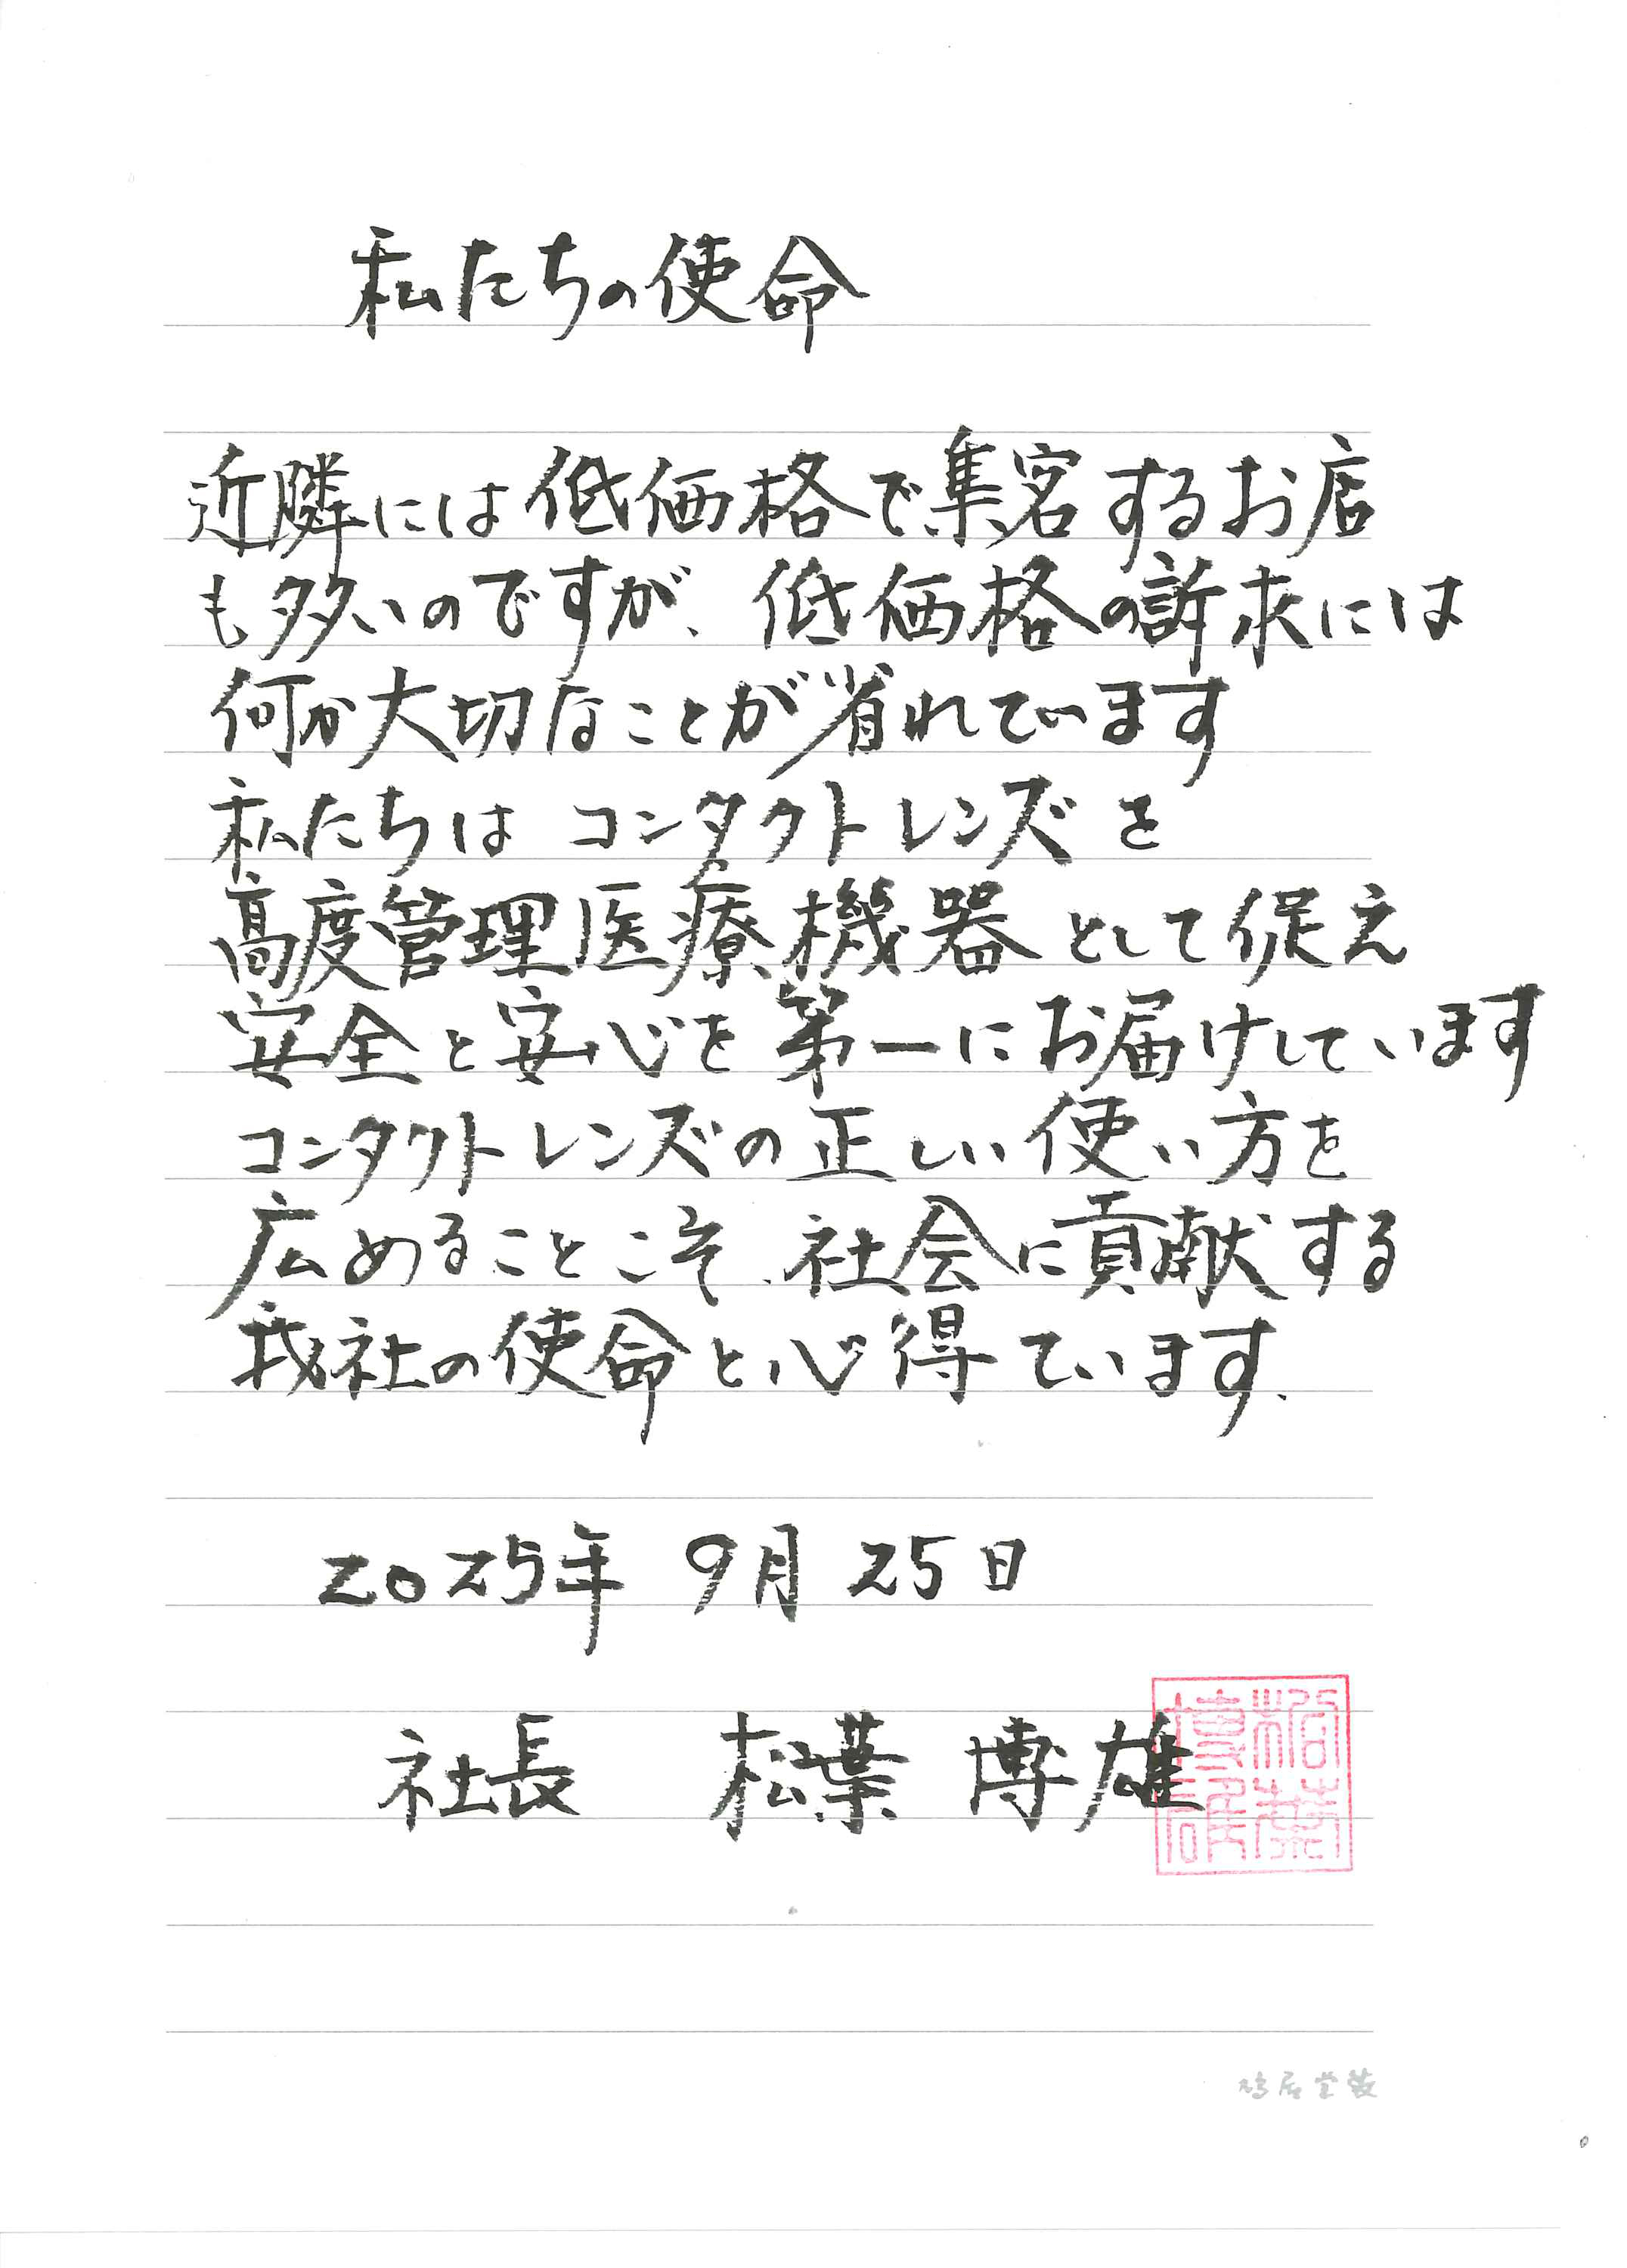 私たちの使命
近隣には低価格で集客するお店
も多いのですが、低価格の訴求には
何か大切なことが省れています
私たちは コンタクトレンズを
高度管理医療機器として促え
安全と安心を第一にお届けしています
コンタクトレンズの正しい使い方を
広めることこそ、社会に貢献する
我社の使命と心得ています、
2025年 9月 25日
社長 松葉 博雄
松葉博雄
鳩居堂製